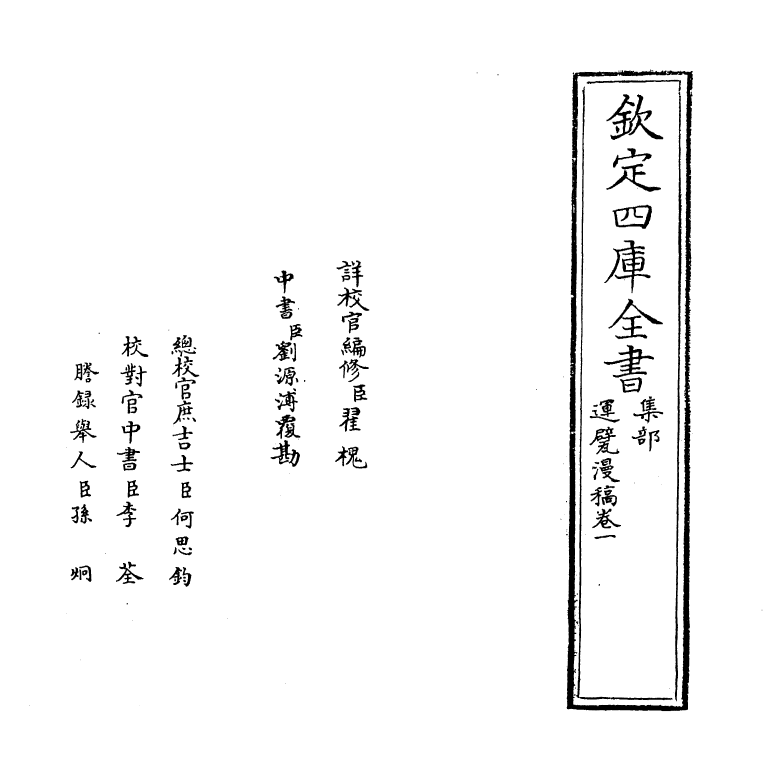 欽定四庫全書
集部
運甓漫稿卷一
詳校官編修臣翟槐
中書臣劉源溥覆勘
總校官庶吉士臣何思鈞
校對官中書臣李荃
謄録舉人臣孫炯